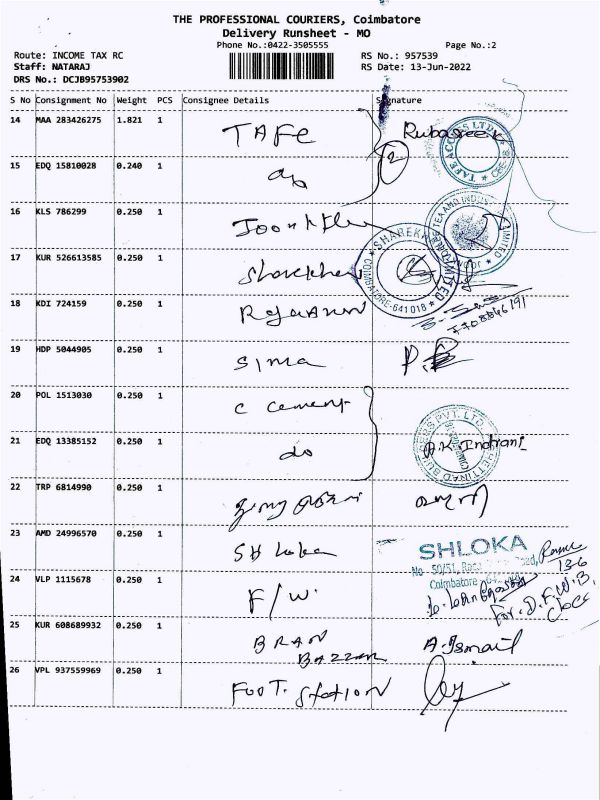 THE PROFESSIONAL COURIERS, Coimbatore
Delivery Runsheet - MO
Phone No.:0422-3505555 Page No.:2
Route: INCOME TAX RC RS No.: 957539
Staff: NATARAJ RS Date: 13-Jun-2022
DRS No.: DCJB95753902
S No Consignment No Weight PCS Consignee Details Signature
14 MAA 283426275 1.821 1 TAFe
2
TAFE ACCESS LTD
15 EDQ 15810028 0.240 1 do
16 KLS 786299 0.250 1
17 KUR 526613585 0.250 1 Sharekhan
SHAREKHAN LIMITED
COIMBATORE-641018
18 KDI 724159 0.250 1
19 HDP 5044905 0.250 1 Sima
20 POL 1513030 0.250 1 C Cement
21 EDQ 13385152 0.250 1 do A.K. Indrani
22 TRP 6814990 0.250 1
23 AMD 24996570 0.250 1 SHloka
SHLOKA
No 50/51,
Coimbatore
136
24 VLP 1115678 0.250 1 F/W.
For. D.F.W.B.
25 KUR 608689932 0.250 1 BRAN A.Ismail
BAZZAR
26 VPL 937559969 0.250 1 FOOT. Station